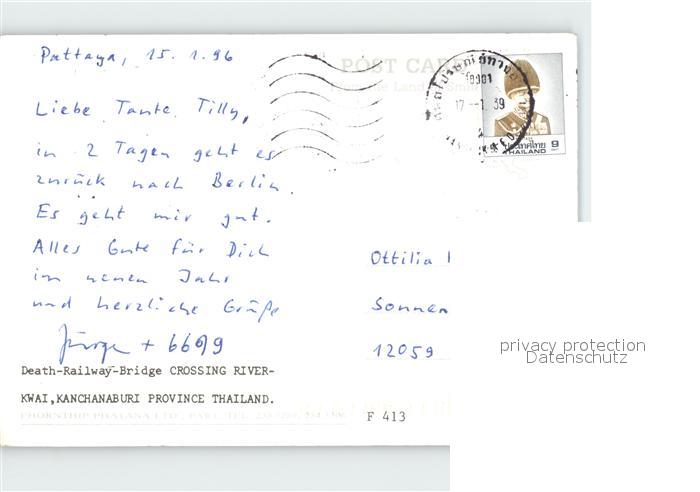 Pattaya, 15.1.96
POST CARD
Liebe Tante Tilly,
in 2 Tagen geht es
zurück nach Berlin.
Es geht mir gut.
Alles Gute für Dich
im neuen Jahr
und herzliche Grüße
Jürgen +
Death-Railway-Bridge CROSSING RIVER-
KWAI,KANCHANABURI PROVINCE THAILAND.
PHORNTHIP PHATANA LTD., PART. TEL.
F 413
ประเทศไทย 9
THAILAND
Ottilia
Sonnen
12059
privacy protection
Datenschutz